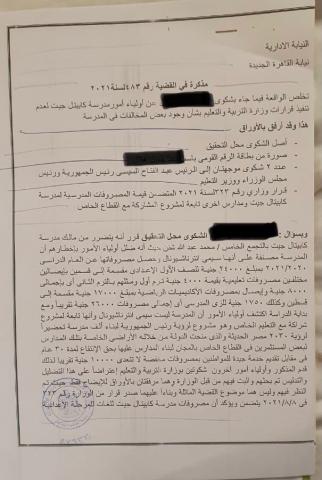 النيابة الادارية
نيابة القاهرة الجديدة
مذكرة في القضية رقم ٤٨٣ لسنة ٢٠٢١
تخلص الواقعة فيما جاء بشكوى من أولياء أمور مدرسة كابيتال حيث لعدم
تنفيذ قرارات وزارة التربية والتعليم بشأن وجود بعض المخالفات في المدرسة
هذا وقد أرفق بالأوراق
- أصل الشكوى محل التحقيق
- صورة من بطاقة الرقم القومي
- عدد ٢ شكوى موجهتان إلى الرئيس عبد الفتاح السيسي رئيس الجمهورية ورئيس
مجلس الوزراء ووزير التعليم
- قرار وزاري رقم ٣٢٣ لسنة ٢٠٢١ المتضمن قيمة المصروفات المدرسية لمدرسة
كابيتال حيث ومدارس اخرى تابعة لمشروع المشاركة مع القطاع الخاص
وبسؤال الشكوى محل التحقيق قرر أنه يتضرر من مالك مدرسة
كابيتال حيث بالتجمع الخامس / محمد عبد الله حيث أنه ضلل أولياء الأمور بإخطارهم أن
المدرسة مصنفة على أنها سيمى انترناشيونال وحصل مصروفاتها عن العام الدراسي
٢٠٢١/٢٠٢٠ بمبلغ ٢٤٠٠٠ جنية للصف الأول الإعدادي مقسمة إلى قسمين بإيصالين
مختلفين مصروفات تعليمية بقيمة ٤٠٠٠ جنية ترم أول ومثلهم بالترم الثاني أى بإجمالي
٨٠٠٠ جنية وإيصال بمصروفات الأكاديميات الرياضية بإجمالي ١٦٠٠٠ جنية مقسمة إلى
قسطين وكذلك ١٧٥٠ جنية للزى المدرسى أى إجمالي مصروفات ٢٦٠٠٠ جنية تقريبا ومع
بداية الدراسة اكتشفت أولياء الأمور أن المدرسة ليست سيمى انترناشيونال وأنها تابعة لمشروع
شراكة مع التعليم الخاص وهو مشروع لرؤية رئيس الجمهورية لبناء ألف مدرسة تحضيراً
لرؤية ٢٠٣٠ مصر الحديثة والذى منحت الدولة من خلاله الأراضي الخاصة بتلك المدارس
لبعض المستثمرين في القطاع الخاص بالمجان لبناء المدارس عليها بحق الإنتفاع لمدة ٣٠ عام
في مقابل تقديم خدمة جيدة للمواطنين بمصروفات منخفضة لا تتعدى ١٠٠٠٠ جنية تقريبا لذلك
قدم المذكور وأولياء أمور آخرون شكوتين بوزارة التربية والتعليم إعتراضاً على هذا التضليل
والتدليس تم بحثهم والبت فيهم من قبل الوزارة وهما مرفقتان بالأوراق للإيضاح فقط حيث تم
النظر فيهم وليس هما موضوع القضية الماثلة وبناءا عليهما صدر قرار من الوزارة رقم ٣٢٣
في ٢٠٢١/٨/٨ يتضمن ويؤكد أن مصروفات مدرسة كابيتال حيث للغات للمرحلة الإعدادية